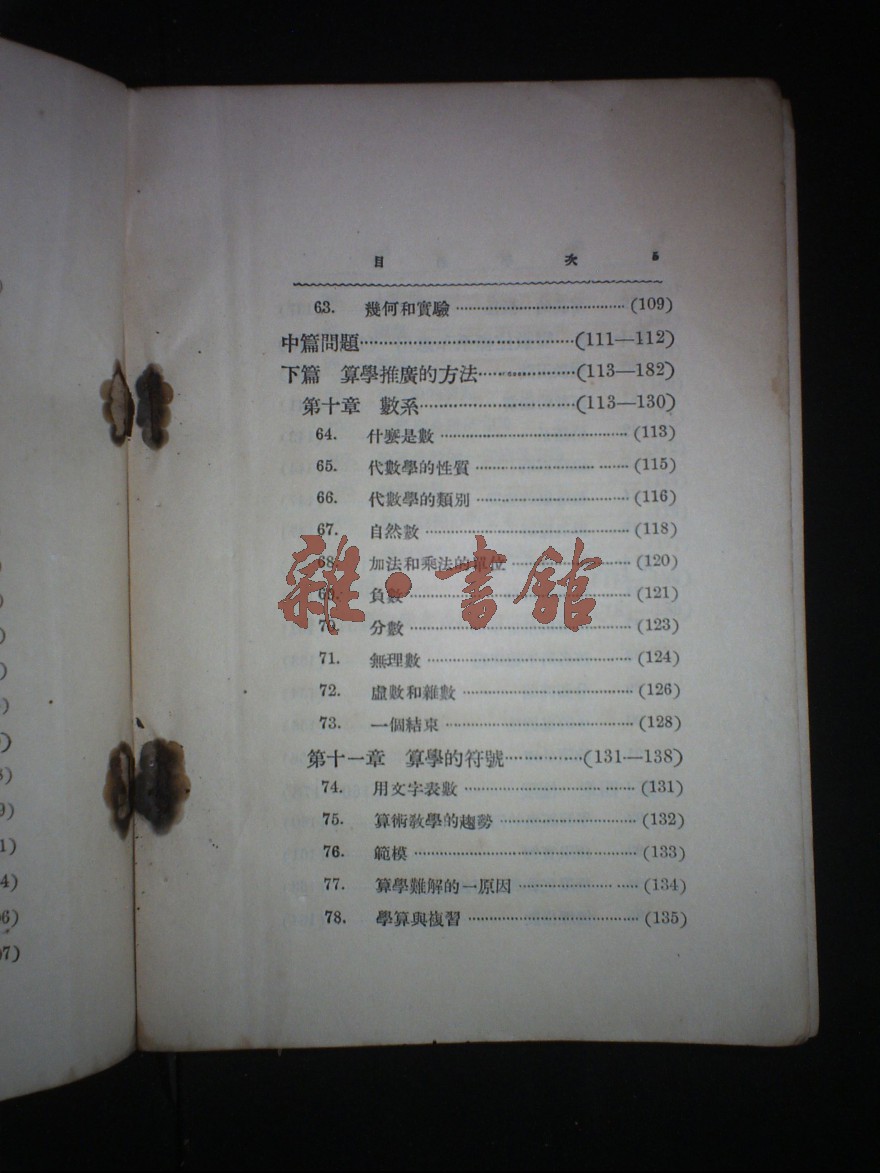 目 次 5
63. 幾何和實驗 (109)
中篇問題 (111—112)
下篇 算學推廣的方法 (113—182)
第十章 數系 (113—130)
64. 什麼是數 (113)
65. 代數學的性質 (115)
66. 代數學的類別 (116)
67. 自然數 (118)
68. 加法和乘法的單位 (120)
69. 負數 (121)
70. 分數 (123)
71. 無理數 (124)
72. 虛數和雜數 (126)
73. 一個結束 (128)
第十一章 算學的符號 (131—138)
74. 用文字表數 (131)
75. 算術教學的趨勢 (132)
76. 範模 (133)
77. 算學難解的一原因 (134)
78. 學算與複習 (135)
雜·書館